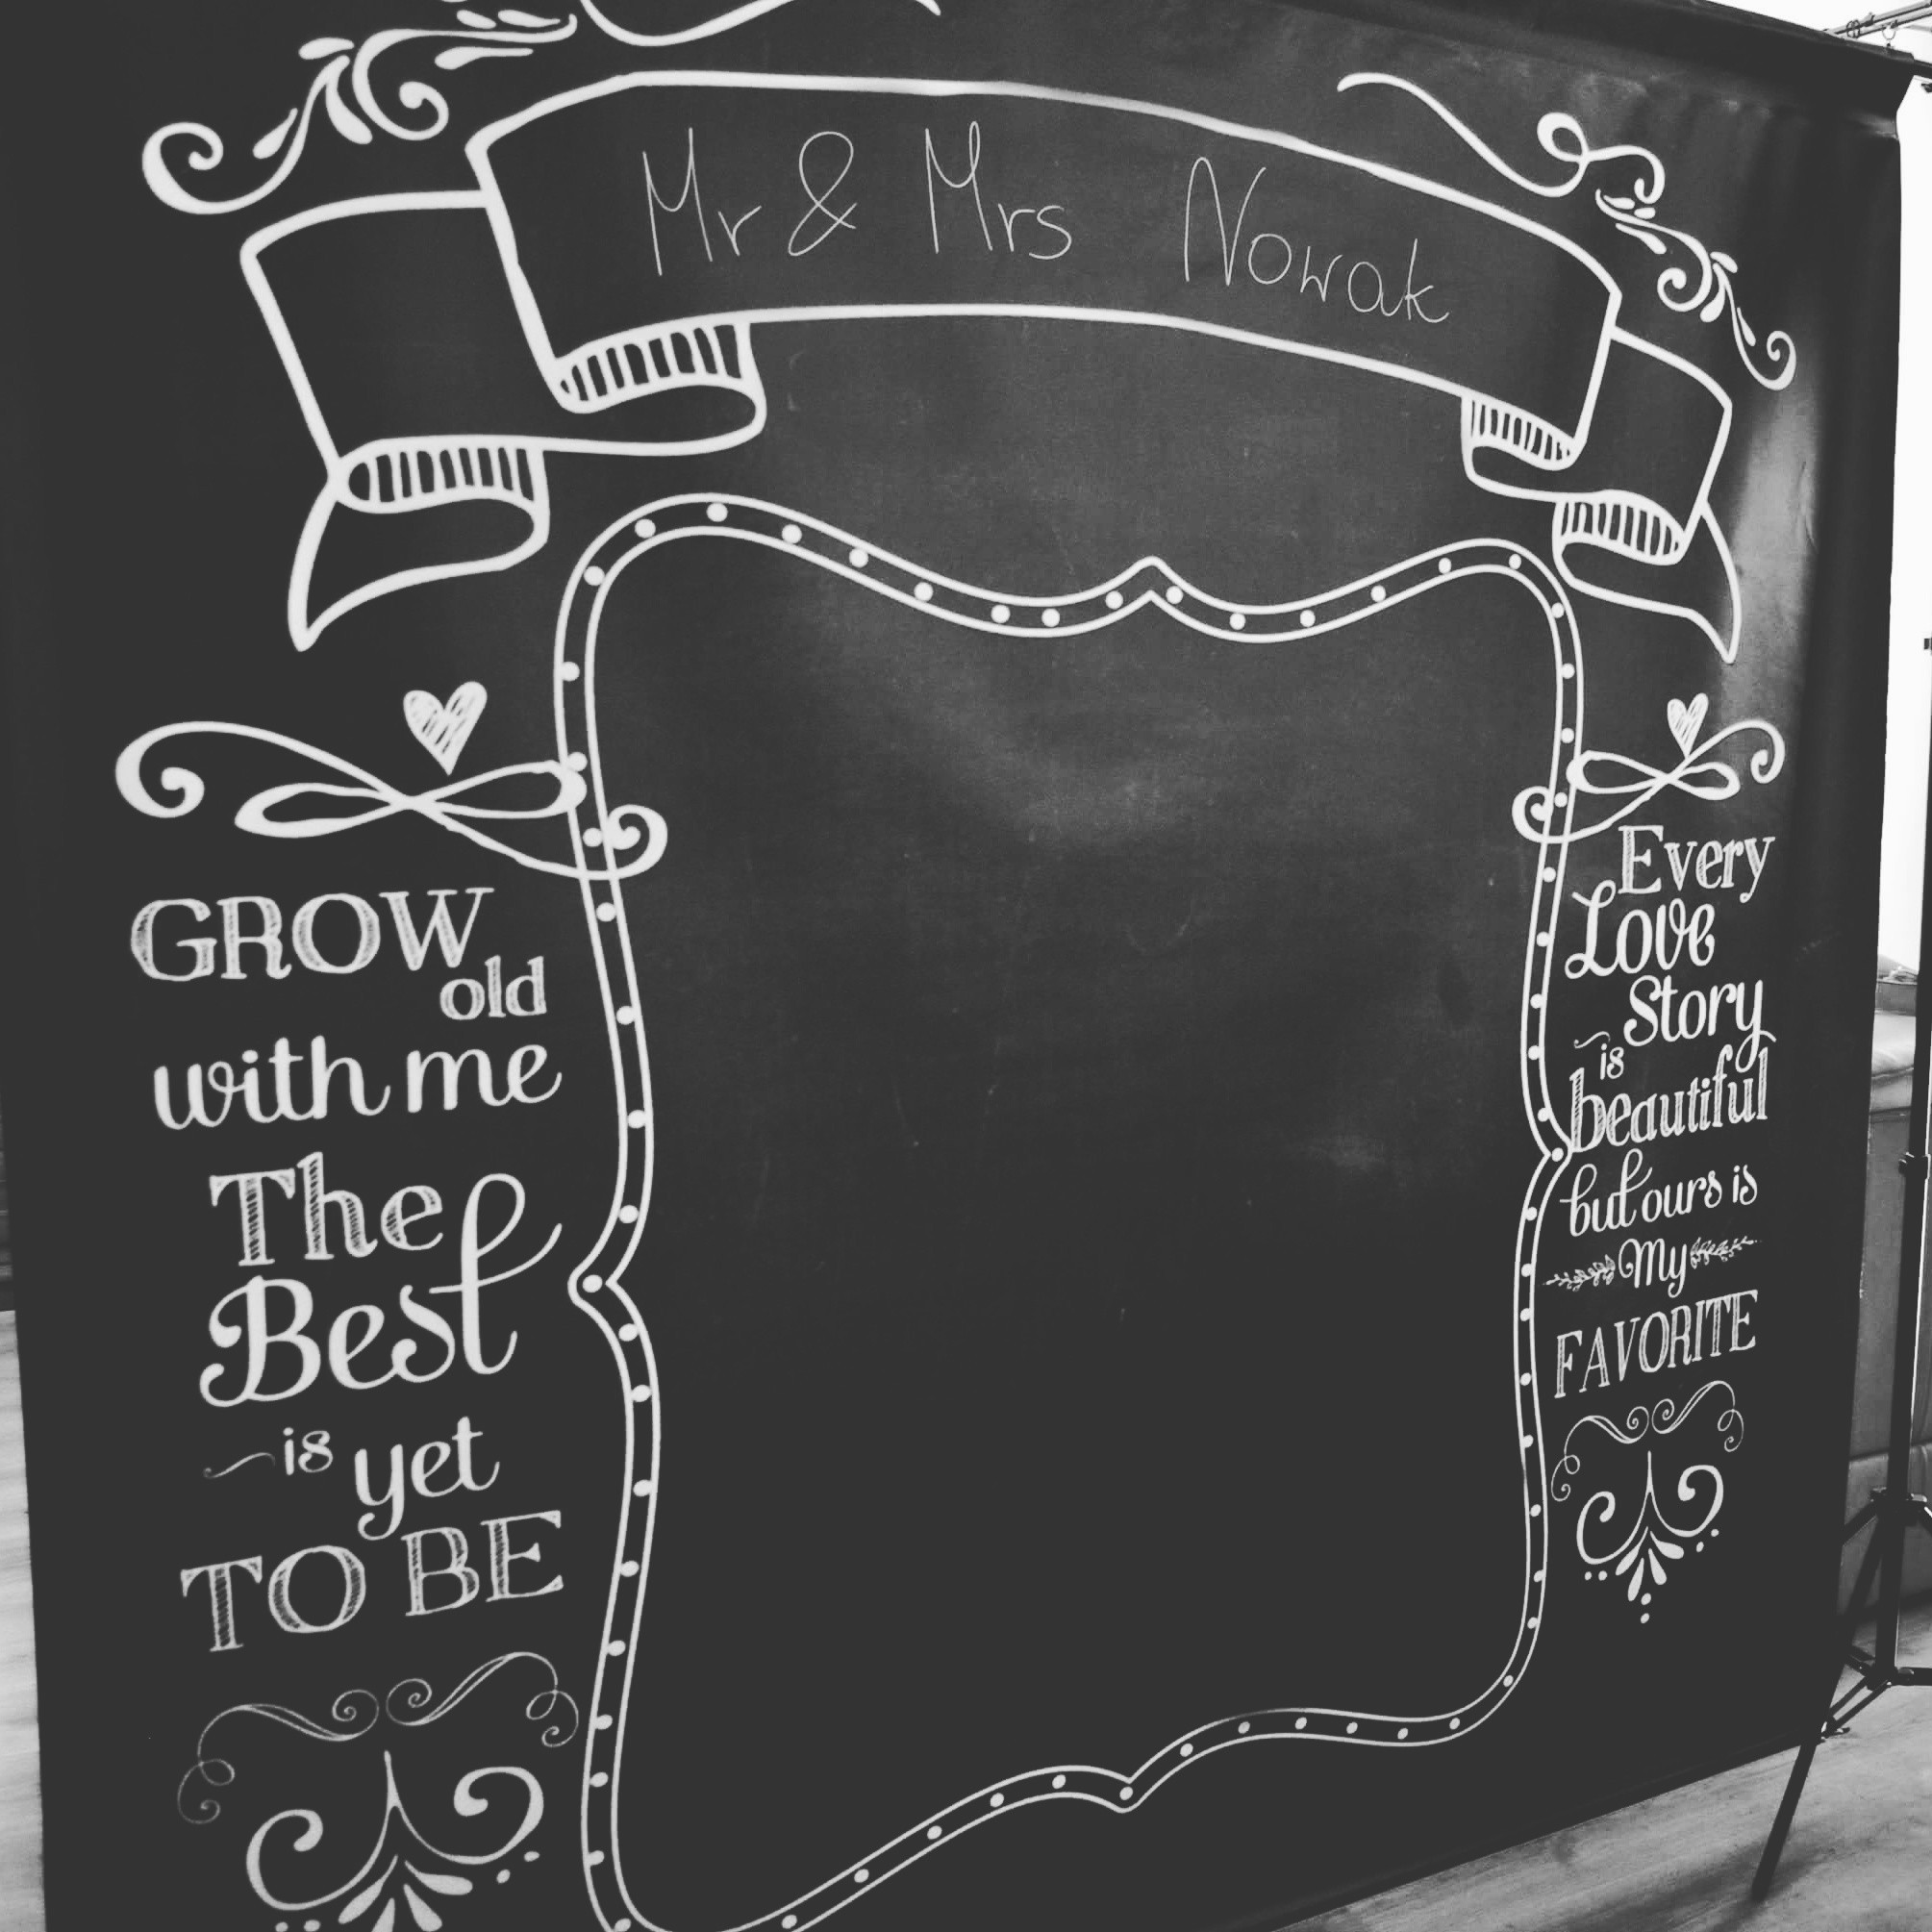 Mr & Mrs Nowak
GROW
old
with me
The
Best
is yet
TO BE
Every
Love
Story
is
beautiful
but ours is
My
FAVORITE